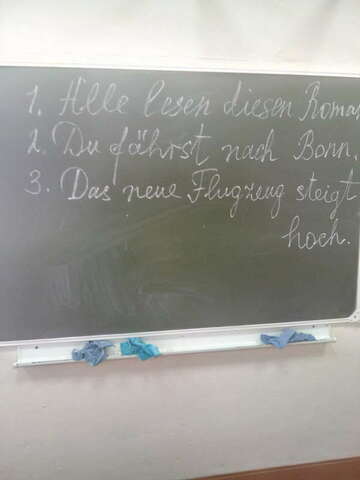 1. Alle lesen diesen Roman
2. Du fährst nach Bonn.
3. Das neue Flugzeug steigt
hoch.